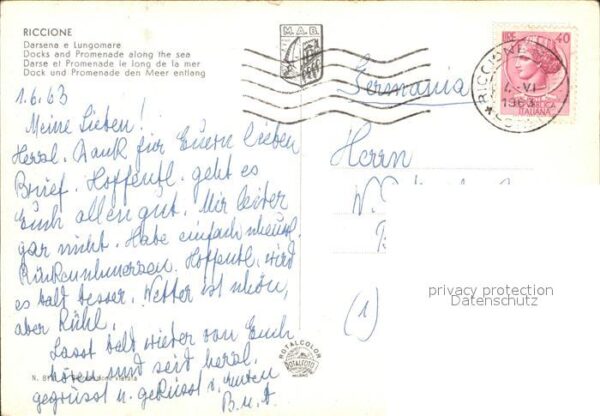 RICCIONE
Darsena e Lungomare
Docks and Promenade along the sea
Darse et Promenade le long de la mer
Dock und Promenade den Meer entlang
M.A.B.
LIRE 40
REPUBBLICA
ITALIANA
RICCIONE
1.-VI
1963
1.6.63
Meine Lieben!
Herzl. Dank für Euern lieben
Brief. Hoffentl. geht es
Euch allen gut. Mir leider
gar nicht. Habe einfach
Rückenschmerzen. Hoffentl. wird
es bald besser. Wetter ist schön,
aber kühl.
Lasst bald wieder von Euch
hören und seid herzl.
gegrüsst u. geküsst v. Euren
B. u. A
Germania
Herrn
W.
(1)
privacy protection
Datenschutz
ROTALCOLOR
ROTALFOTO
MILANO